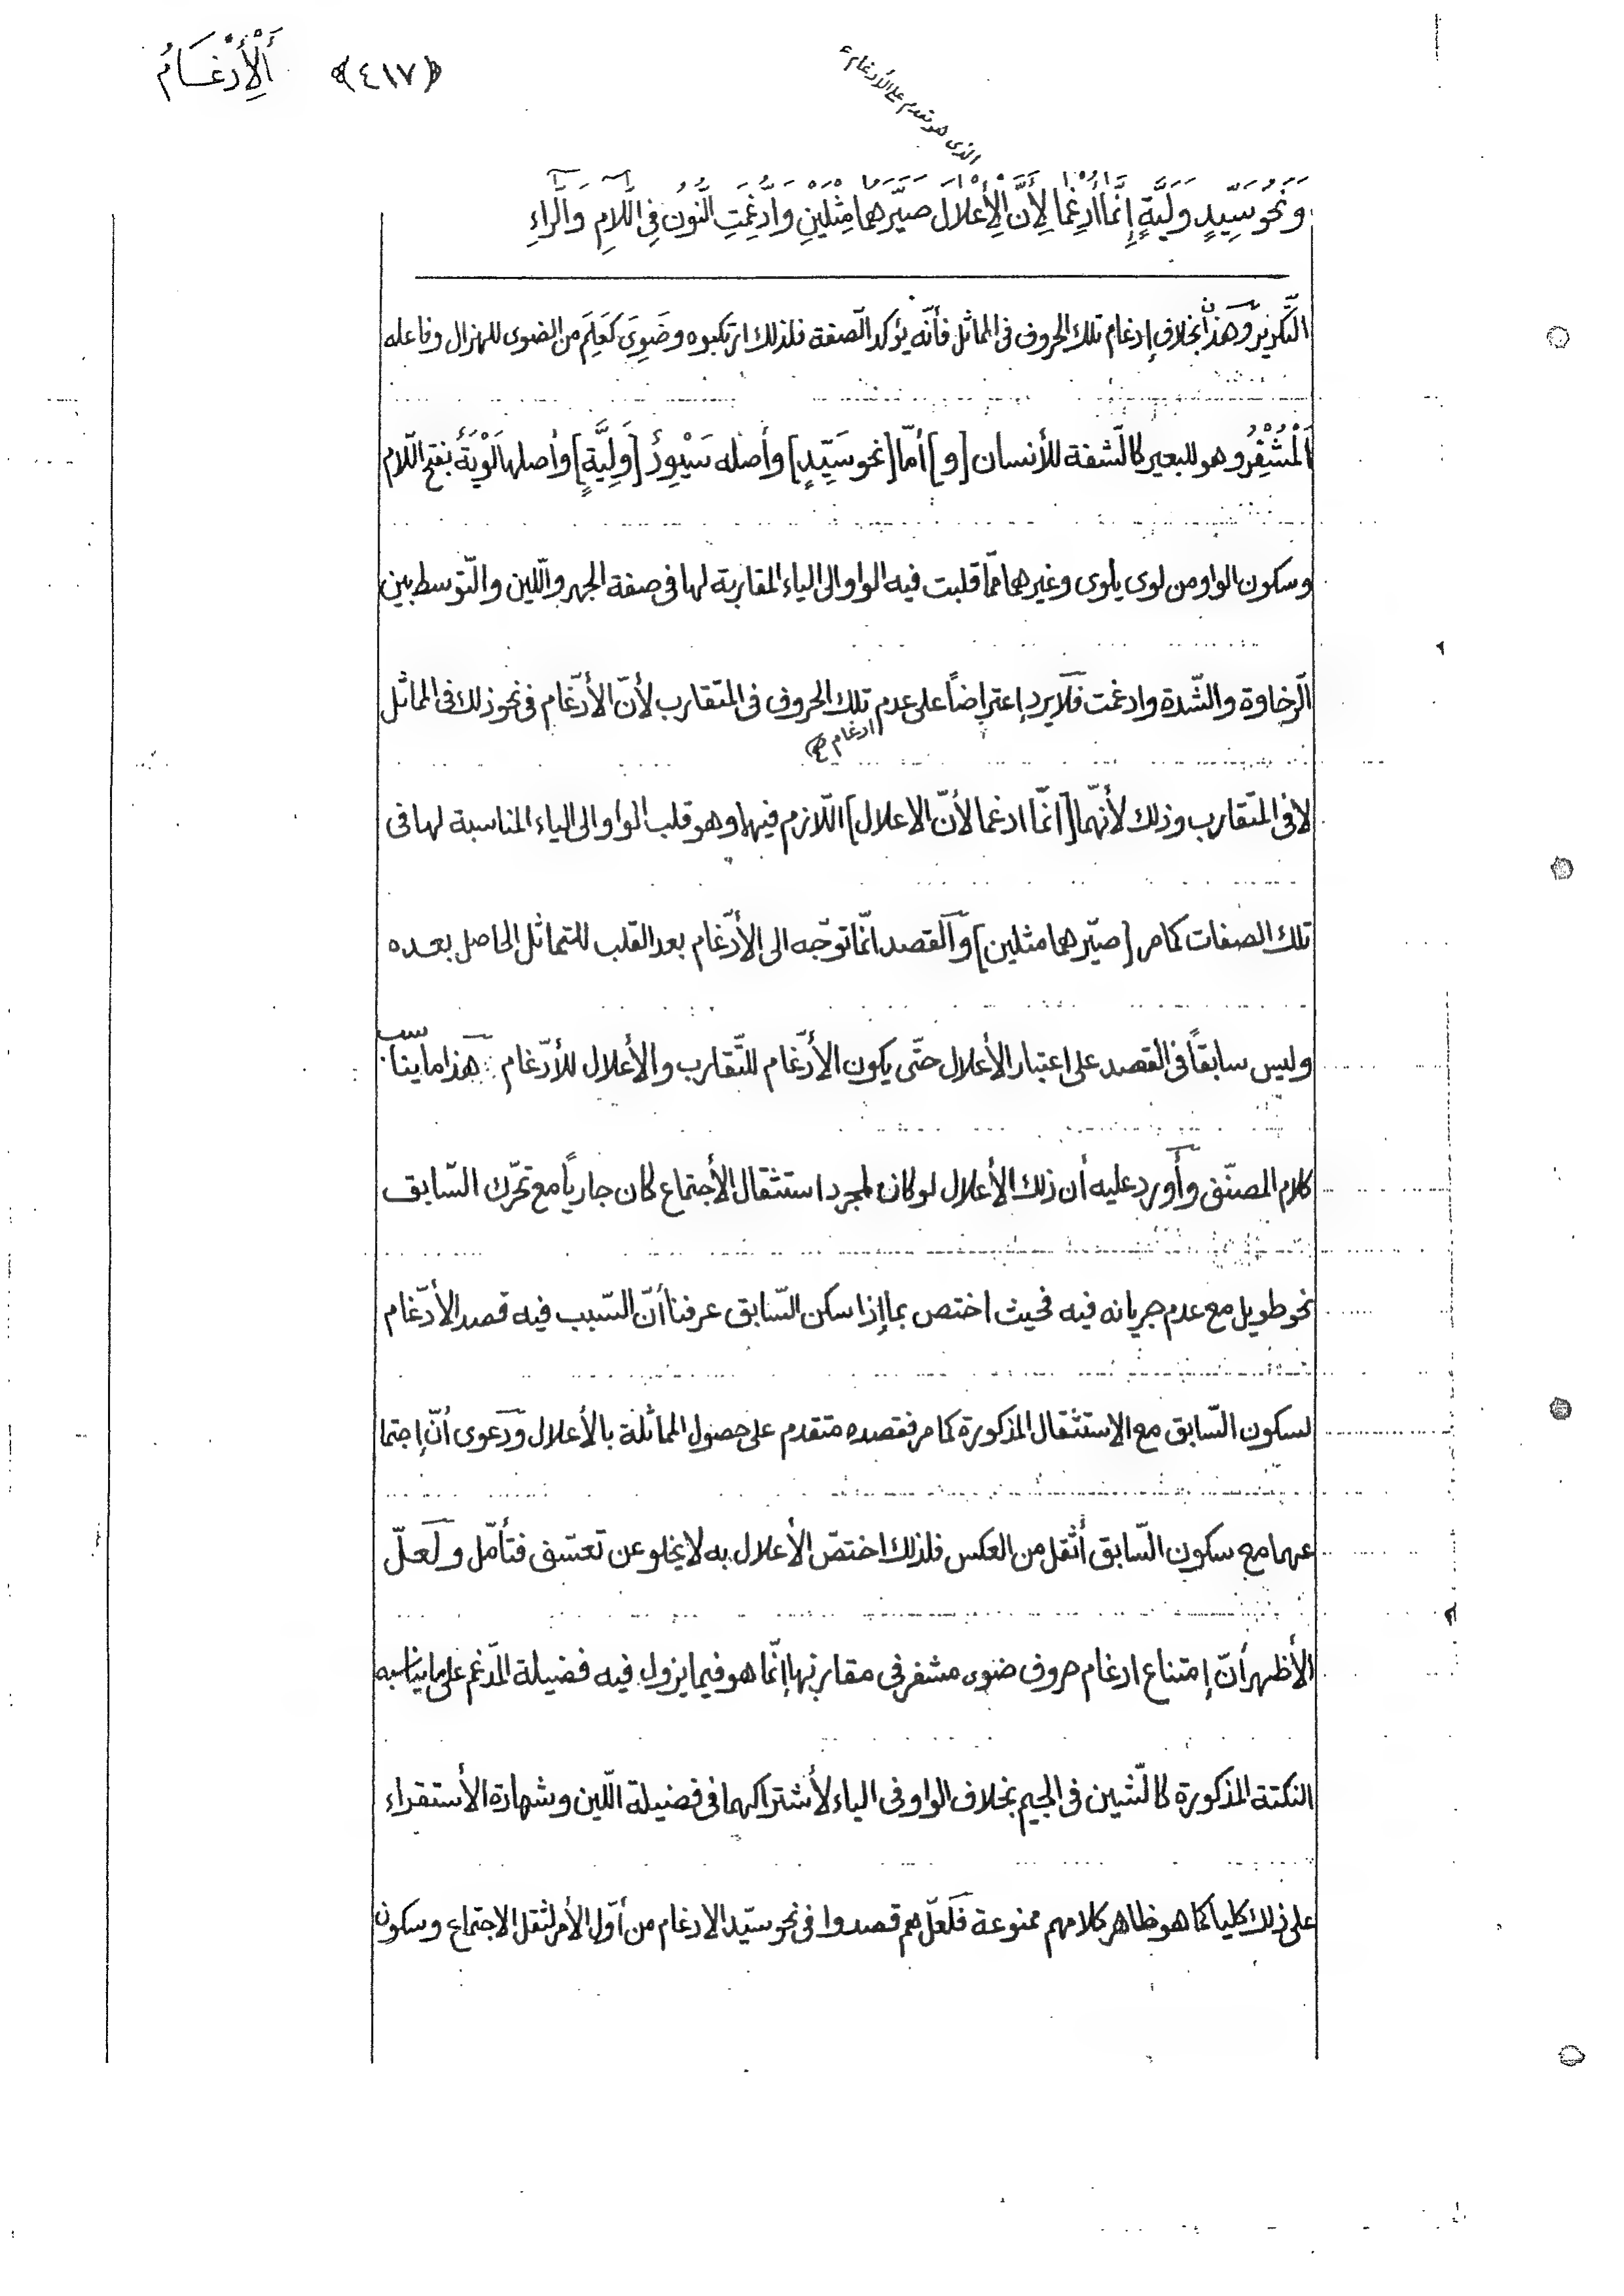 أَلْإِدْغَامُ ﴿٤١٧﴾
الذى هو تقدم على الأدغام
وَنَحْوُ سَيِّدٍ وَلَيَّةٍ إِنَّمَا أُدْغِمَا لِأَنَّ الْإِعْلَالَ صَيَّرَهُمَا مِثْلَيْنِ وَادُّغِمَتِ النُّونُ فِى اللَّامِ وَالرَّاءِ
التّكرير وهذا بخلاف إدغام تلك الحروف فى المماثل فأنّه يؤكد الصّفة فلذلك ارتكبوه وضَوِىَ كعَلِمَ من الضوى للهزال وفاعله
اَلْمُشْفِرُ وهو للبعير كالشّفة للأنسان [و] أمّا [نحو سَيّدٍ] وأصله سَيْوِدٌ [وَلِيَّةٍ] وأصلها لَوْيَةٌ بفتح اللّام
وسكون الواو من لوى يلوى وغيرهما ممّا قلبت فيه الواو الى الياء المقاربة لها فى صفة الجهر واللّين والتّوسط بين
الرّخاوة والشّدة وادغمت فلا يرد إعتراضاً على عدم تلك الحروف فى المتقارب لأنّ الأدّغام فى نحو ذلك فى المماثل
ادغام
لا فى المتقارب وذلك لأنّهما [انّما ادغما لأنّ الاعلال] اللّازم فيها وهو قلب الواو الى الياء المناسبة لها فى
تلك الصفات كما مر [صيّرهما مثلين] والقصد انّما توجّه الى الأدّغام بعد القلب للتماثل الحاصل بعده
وليس سابقاً فى القصد على اعتبار الأعلال حتّى يكون الأدّغام للتّقارب والأعلال للأدّغام هذا ما يناسب
كلام المصنّف وأورد عليه أن ذلك الأعلال لو كان لمجرد استثقال الأجتماع كان جارياً مع تحرّك السّابق
نحو طويل مع عدم جريانه فيه فحيث اختص بما إذا سكن السّابق عرفنا أنّ السّبب فيه قصد الأدّغام
لسكون السّابق مع الاستثقال المذكورة كما مر فقصده متقدم على حصول المماثلة بالأعلال ودعوى أنّ إجتما
عهما مع سكون السّابق أثقل من العكس فلذلك اختصّ الأعلال به لا يخلو عن تعسّف فتأمّل ولعلّ
الأظهر أنّ إمتناع ادغام حروف ضوى مشفر فى مقاربها إنّما هو فيما يزول فيه فضيلة المدّغم على ما يناسبه
النكتة المذكورة كالشّين فى الجيم بخلاف الواو فى الياء لأشتراكهما فى فضيلة اللّين وشهادة الأستقراء
على ذلك كليا كما هو ظاهر كلامهم ممنوعة فلعلّهم قصدوا فى نحو سيّد الادغام من أوّل الأمر لثقل الاجتماع وسكون